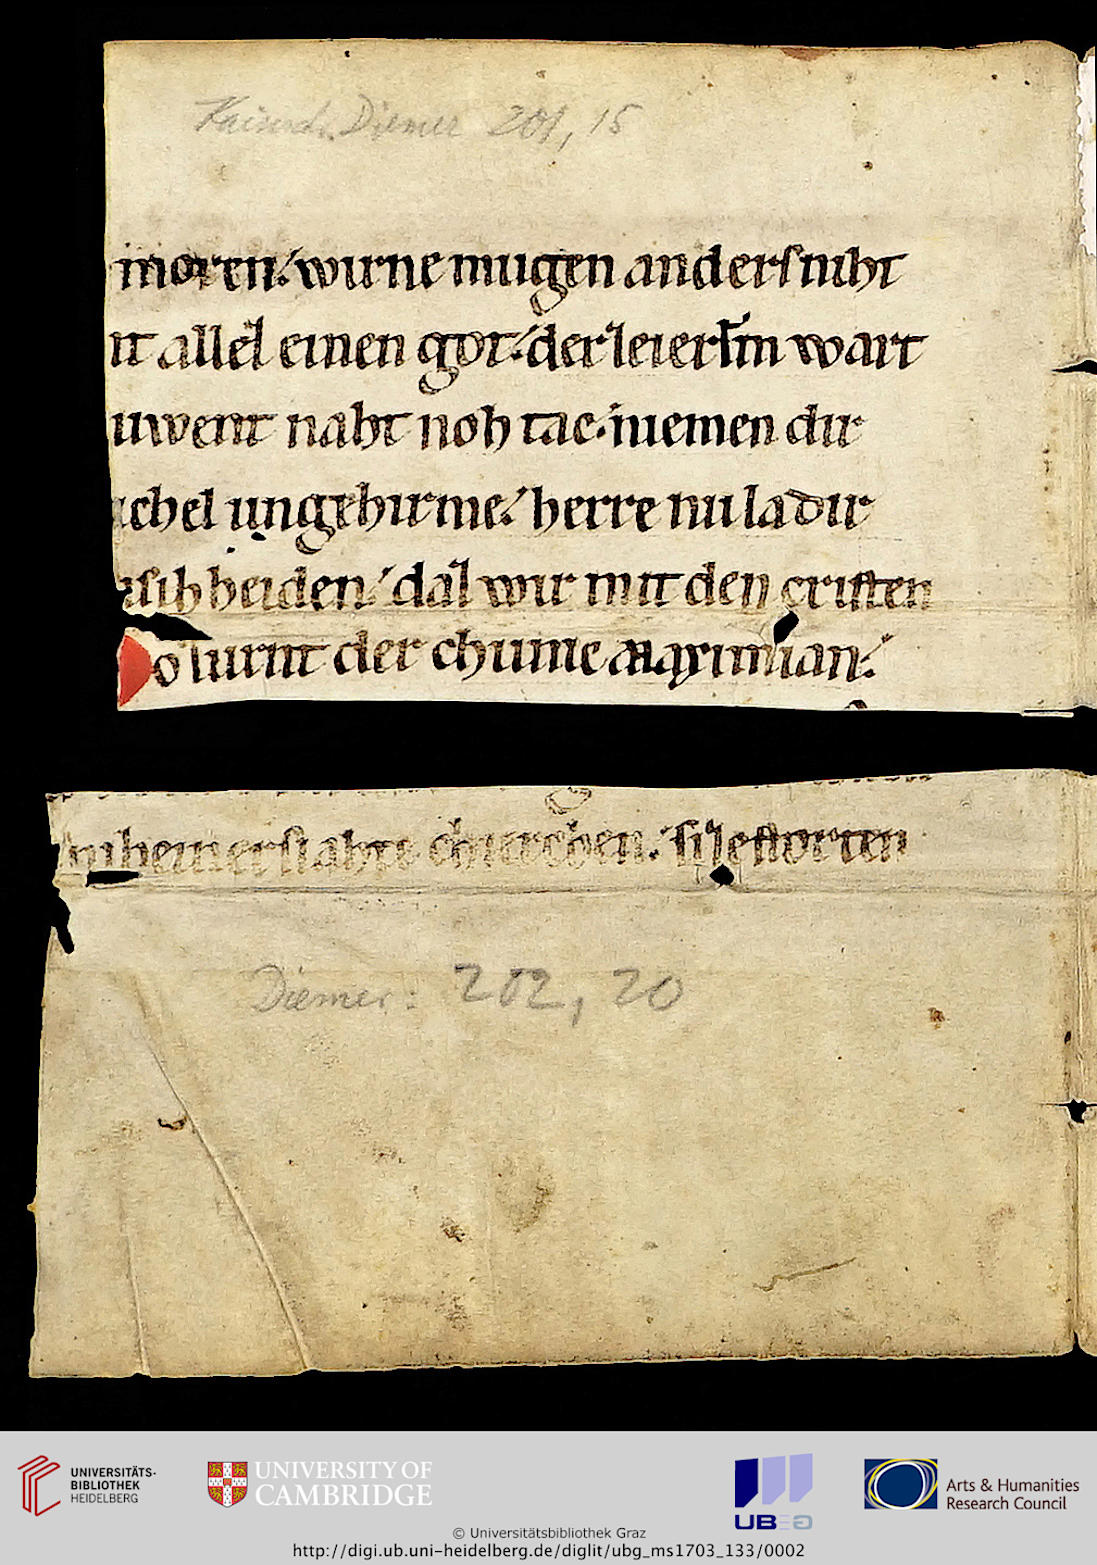 Kaiserch. Diemer 201, 15
moren. wir ne mugen anderſ niht
it alleſ einen got. der ſeier ſin wart
uwent naht noh tac. niemen dir
chel ungehirme. herre nu la dir
ſih heiden. daſ wir mit den criſten
o ſurnt der chunic Maximian.
niheiner ſlahte chirchen. ſi zeſtorten
Diemer: 202, 20
UNIVERSITÄTS-
BIBLIOTHEK
HEIDELBERG
UNIVERSITY OF
CAMBRIDGE
UBG
Arts & Humanities
Research Council
© Universitätsbibliothek Graz
http://digi.ub.uni-heidelberg.de/diglit/ubg_ms1703_133/0002